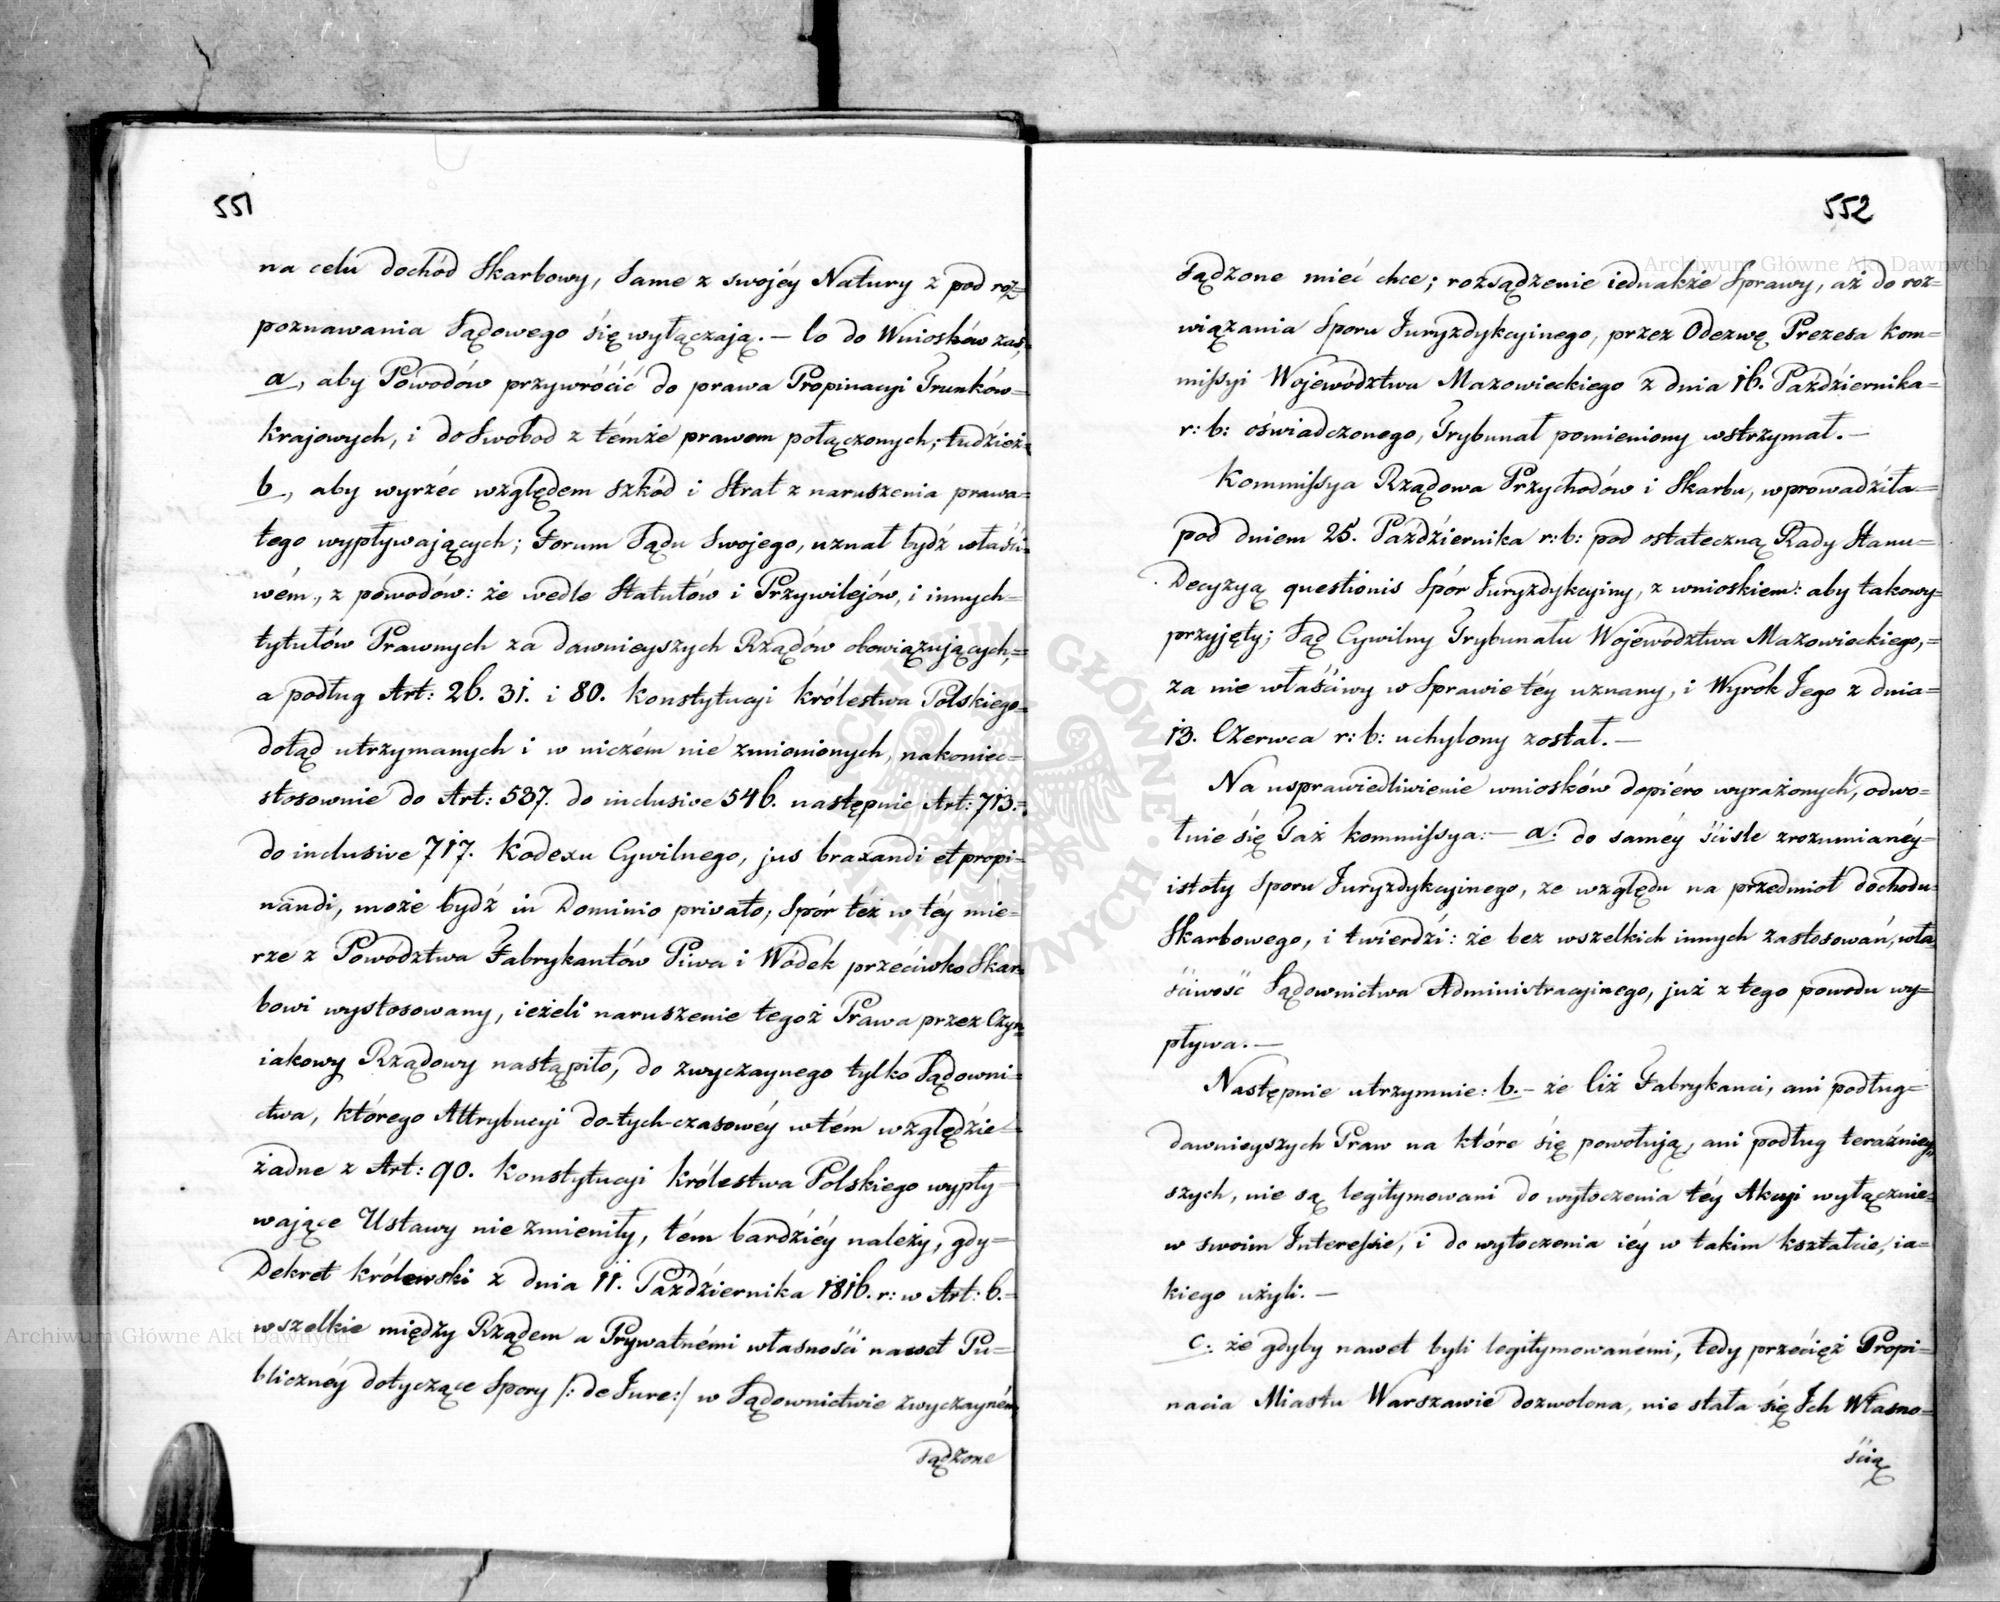 551
na celu dochód Skarbowy, Same z swojéy Natury z pod roz=
poznawania Sądowego się wyłączają. — Co do Wniosków zaś,
a, aby Powodów przywrócić do prawa Propinacyi Trunków=
krajowych, i do Swobod z témże prawem połączonych; tudzież=
b, aby wyrzéc względem szkód i Strat z naruszenia prawa=
tego wypływających; Forum Sądu Swojego, uznał bydź właści=
wém, z powodów: że wedle Statutów i Przywilejów, i innych=
tytułów Prawnych za dawnieyszych Rządów obowiązujących,=
a podług Art: 26. 31. i 80. Konstytucyi Królestwa Polskiego=
dotąd utrzymanych i w niczém nie zmienionych, nakoniec=
stosownie do Art: 537. do inclusive 546. następnie Art: 713.=
do inclusive 717. Kodexu Cywilnego, jus braxandi et propi=
nandi, może bydź in Dominio privato; Spór téż w téy mie=
rze z Powództwa Fabrykantów Piwa i Wódek przeciwko Skar=
bowi wystosowany, ieżeli naruszenie tegoż Prawa przez Czyn=
iakowy Rządowy nastąpiło, do zwyczaynego tylko Sądowni=
ctwa, którego Attrybucyi do-tych-czasowéy w tém względzie=
żadne z Art: 90. Konstytucyi Królestwa Polskiego wypły=
wające Ustawy nie zmieniły, tém bardziéy należy, gdy=
Dekret Królewski z dnia 11. Października 1816. r: w Art: 6.=
wszelkie między Rządem a Prywatnémi własności nawet Pu=
blicznéy dotyczące Spory /: de Jure:/ w Sądownictwie zwyczayném,
sądzone
552
sądzone mieć chce; rozsądzenie iednakże Sprawy, aż do roz=
wiązania Sporu Juryzdykcyinego, przez Odezwę Prezesa Kom=
missyi Województwa Mazowieckiego z dnia 16. Października=
r: b: oświadczonego, Trybunał pomieniony wstrzymał. —
Kommissya Rządowa Przychodów i Skarbu, wprowadziła=
pod dniem 25. Października r: b: pod ostateczną Rady Stanu=
Decyzyą questionis Spór Juryzdykcyiny, z wnioskiem: aby takowy=
przyjęty; Sąd Cywilny Trybunału Województwa Mazowieckiego,=
za nie właściwy w Sprawie téy uznany, i Wyrok Jego z dnia=
13. Czerwca r: b: uchylony został. —
Na usprawiedliwienie wniosków dopiéro wyrażonych, odwo=
łuie się Taż Kommissya: — a: do saméy ściśle zrozumianéy=
istoty Sporu Juryzdykcyinego, ze względu na przedmiot dochodu=
Skarbowego, i twierdzi: że bez wszelkich innych zastosowań, wła
ściwość Sądownictwa Administracyinego, już z tego powodu wy=
pływa. —
Następnie utrzymuie: b. — że Ciż Fabrykanci, ani podług=
dawnieyszych Praw na które się powołują, ani podług teraźniey=
szych, nie są legitymowani do wytoczenia téy Akcyi wyłącznie=
w swoim Interessie, i do wytoczenia iéy w takim kształcie, ia=
kiego użyli. —
c: że gdyby nawet byli legitymowanémi, tedy przecięż Propi=
nacia Miastu Warszawie dozwolona, nie stała się Ich Własno=
ścią